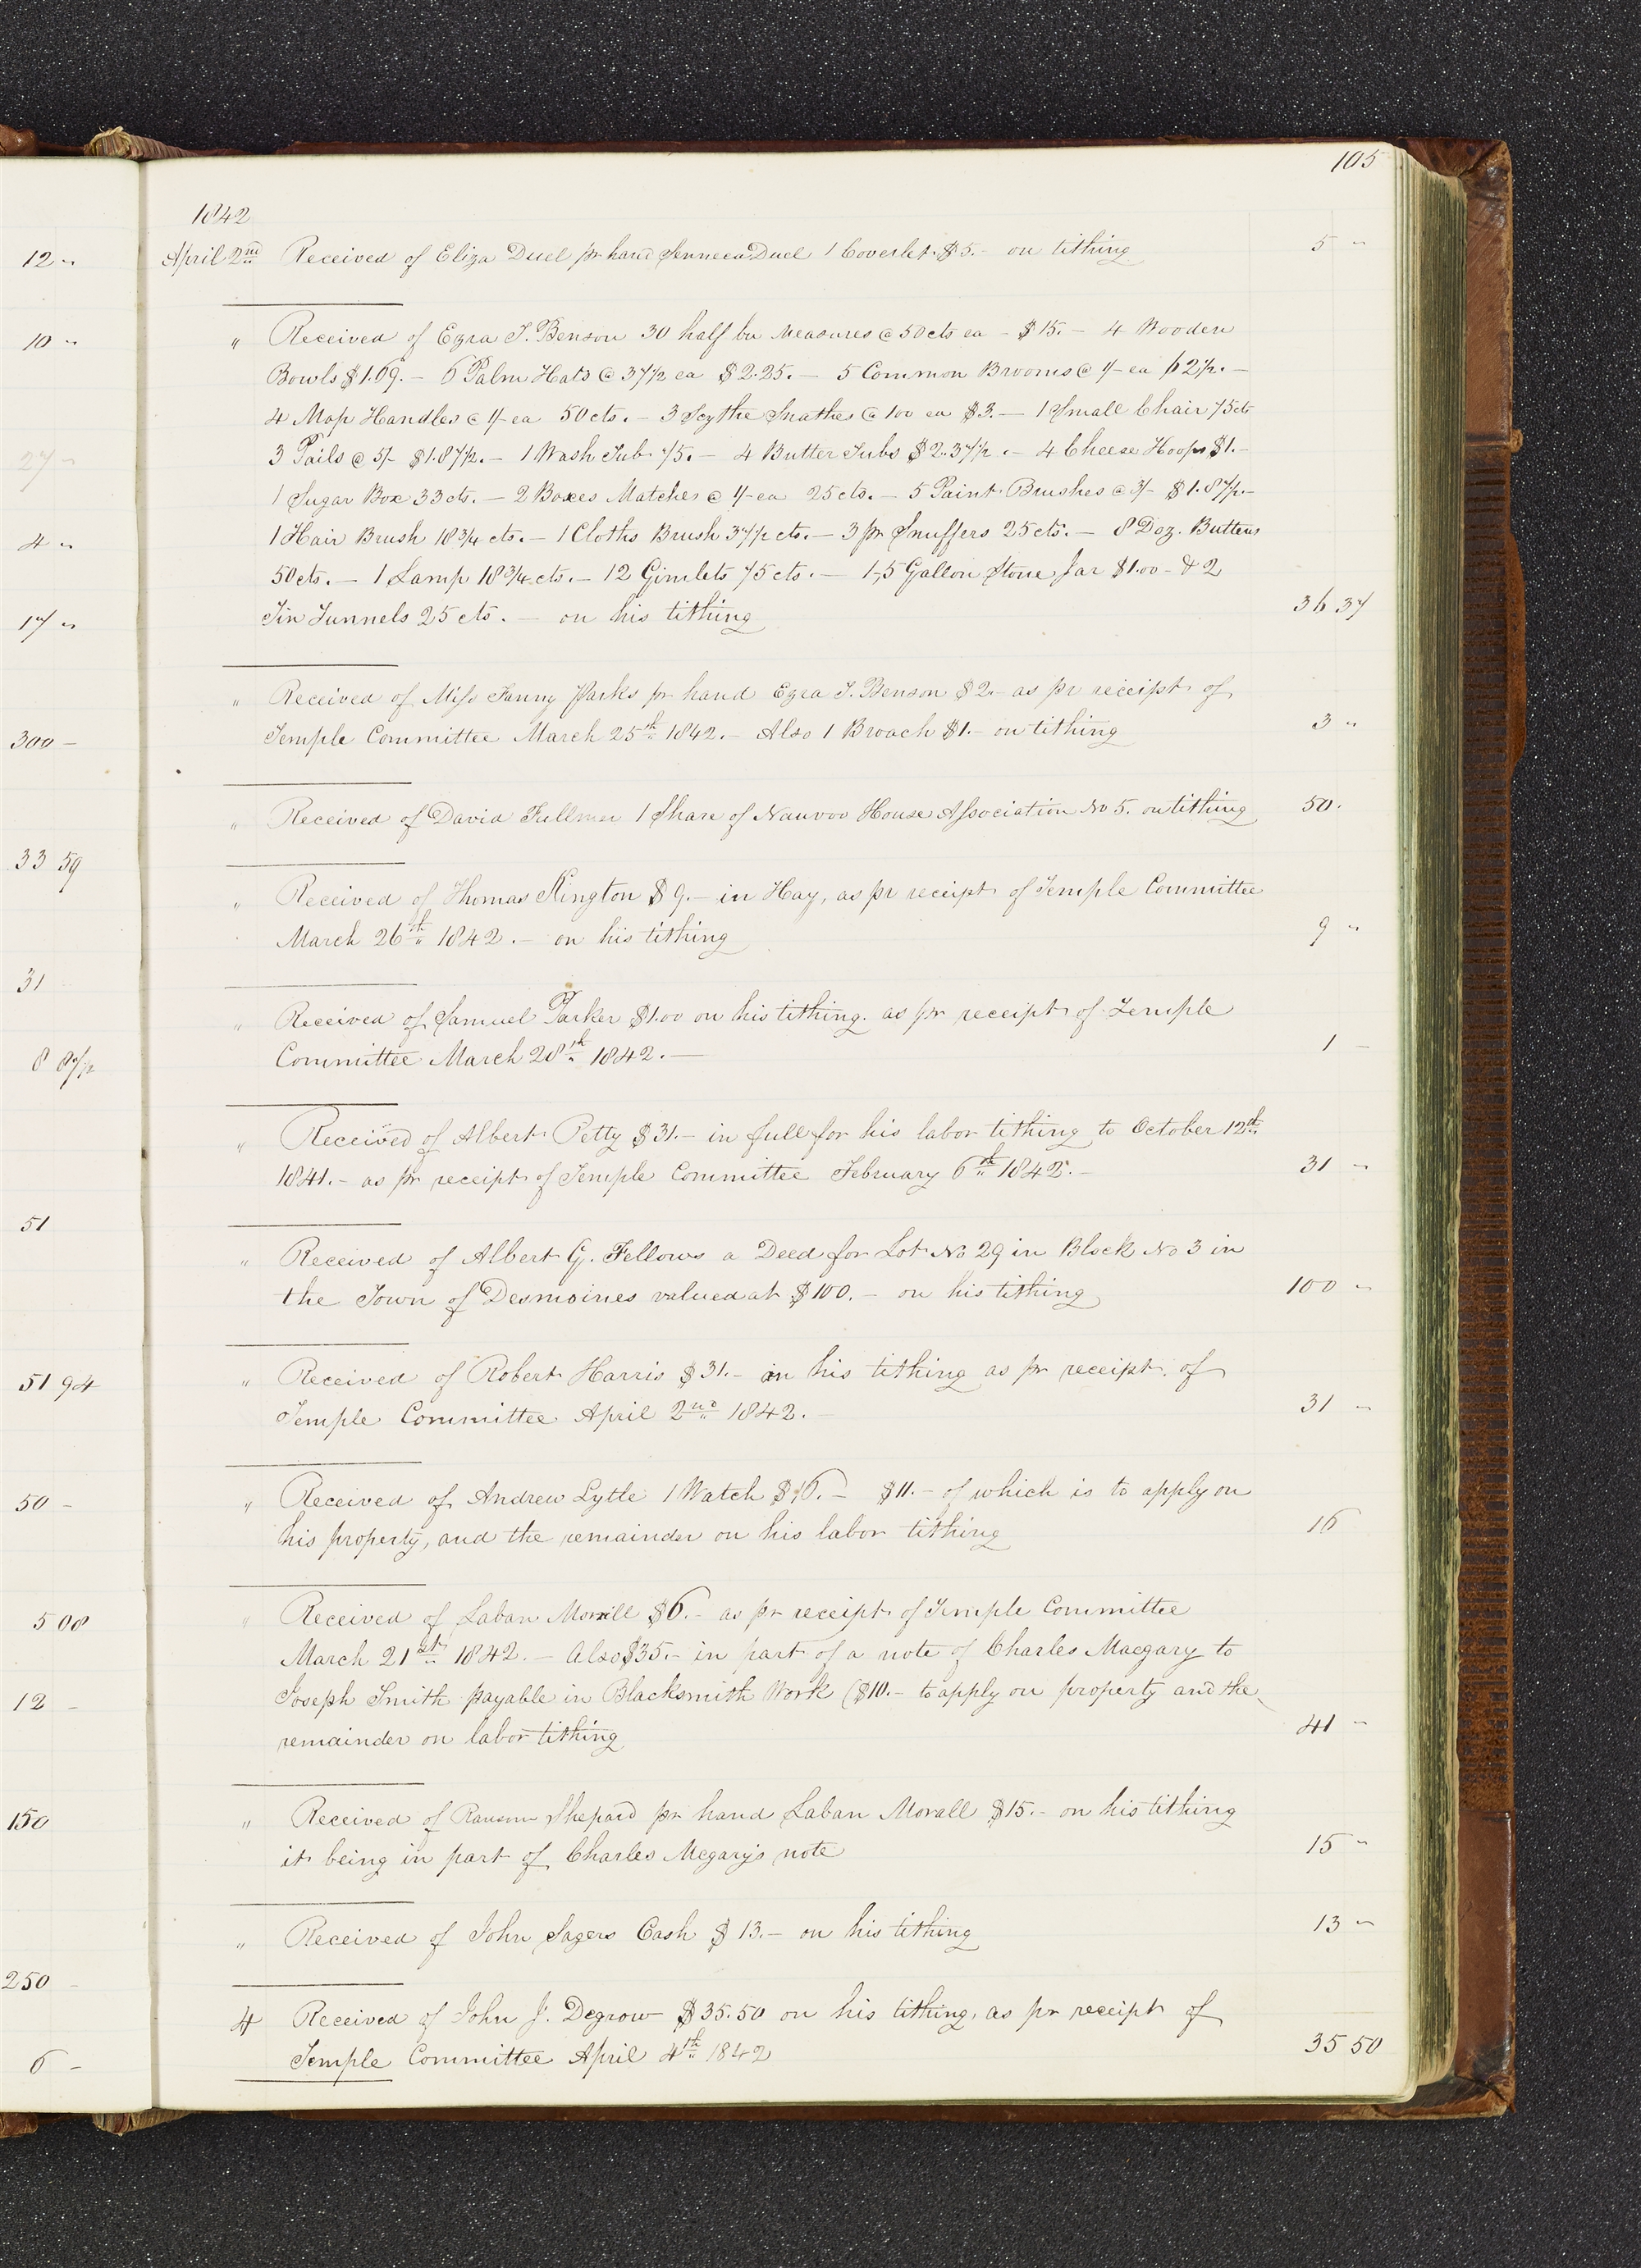 105
1842
April 2nd Received of Eliza Duel pr hand Senneca Duel 1 Coverlet. $5.- on tithing 5 "
" Received of Ezra T. Benson 30 half bu Measures @ 50cts ea - $15.- 4 Wooden
Bowls $1.69.- 6 Palm Hats @ 37½ ea $2.25.- 5 Common Brooms @ 1/- ea 62½.-
4 Mop Handles @ 1/- ea 50cts.- 3 Scythe Snathes @ 100 ea $3.- 1 Small Chair 75cts
3 Pails @ 5/- $1.87½.- 1 Wash Tub 75.- 4 Butter Tubs $2.37½.- 4 Cheese Hoops $1.-
1 Sugar Box 33cts.- 2 Boxes Matches @ 1/- ea 25cts.- 5 Paint Brushes @ 3/- $1.87½.-
1 Hair Brush 18¾ cts.- 1 Cloths Brush 37½ cts.- 3 pr Snuffers 25cts.- 8 Doz. Buttons
50cts.- 1 Lamp 18¾ cts.- 12 Gimlets 75cts.- 1,-5 Gallon Stone Jar $1.00- & 2
Tin Tunnels 25cts.- on his tithing 36 37
" Received of Miss Fanny Parks pr hand Ezra T. Benson $2.- as pr receipt of
Temple Committee March 25th 1842.- Also 1 Broach $1.- on tithing 3 "
" Received of David Fullmer 1 Share of Nauvoo House Association No 5. on tithing 50.
" Received of Thomas Kington $9.- in Hay, as pr receipt of Temple Committee
March 26th 1842.- on his tithing 9 "
" Received of Samuel Parker $1.00 on his tithing. as pr receipt of Temple
Committee March 28th 1842.- 1 -
" Received of Albert Petty $31.- in full for his labor tithing to October 12th
1841.- as pr receipt of Temple Committee February 6th 1842.- 31 "
" Received of Albert G. Fellows a Deed for Lot No 29 in Block No 3 in
the Town of Desmoines valued at $100.- on his tithing 100 "
" Received of Robert Harris $31.- on his tithing as pr receipt of
Temple Committee April 2nd 1842.- 31 "
" Received of Andrew Lytle 1 Watch $16.- $11.- of which is to apply on
his property, and the remainder on his labor tithing 16
" Received of Laban Morrill $6.- as pr receipt of Temple Committee
March 21st 1842.- Also $35.- in part of a note of Charles Macgary to
Joseph Smith payable in Blacksmith Work ($10.- to apply on property and the
remainder on labor tithing 41 "
" Received of Ransom Shepard pr hand Laban Morall $15.- on his tithing
it being in part of Charles Mcgary's note 15 "
" Received of John Sagers Cash $13.- on his tithing 13 "
4 Received of John J. Degrow $35.50 on his tithing, as pr receipt of
Temple Committee April 4th 1842 35 50
12 "
10 "
27 "
4 "
17 "
300 -
33 59
31
8 87½
51
51 94
50 -
5 08
12 -
150
250 -
6 -